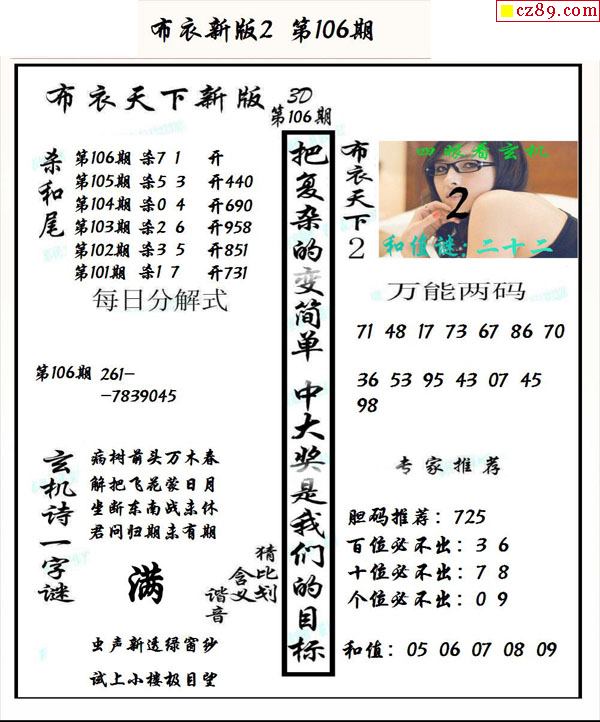 cz89.com
布衣新版2 第106期
布衣天下新版 3D
第106期
杀和尾
第106期 杀7 1 开
第105期 杀5 3 开440
第104期 杀0 4 开690
第103期 杀2 6 开958
第102期 杀3 5 开851
第101期 杀1 7 开731
每日分解式
第106期 261-
-7839045
玄机诗一字谜
病树前头万木春
解把飞花蒙日月
坐断东南战未休
君问归期未有期
满
猜比划
含义
谐音
虫声新透绿窗纱
试上小楼极目望
把复杂的变简单 中大奖是我们的目标
布衣天下2
四眼看玄机
2
和值谜:二十二
万能两码
71 48 17 73 67 86 70
36 53 95 43 07 45
98
专家推荐
胆码推荐:725
百位必不出:3 6
十位必不出:7 8
个位必不出:0 9
和值:05 06 07 08 09